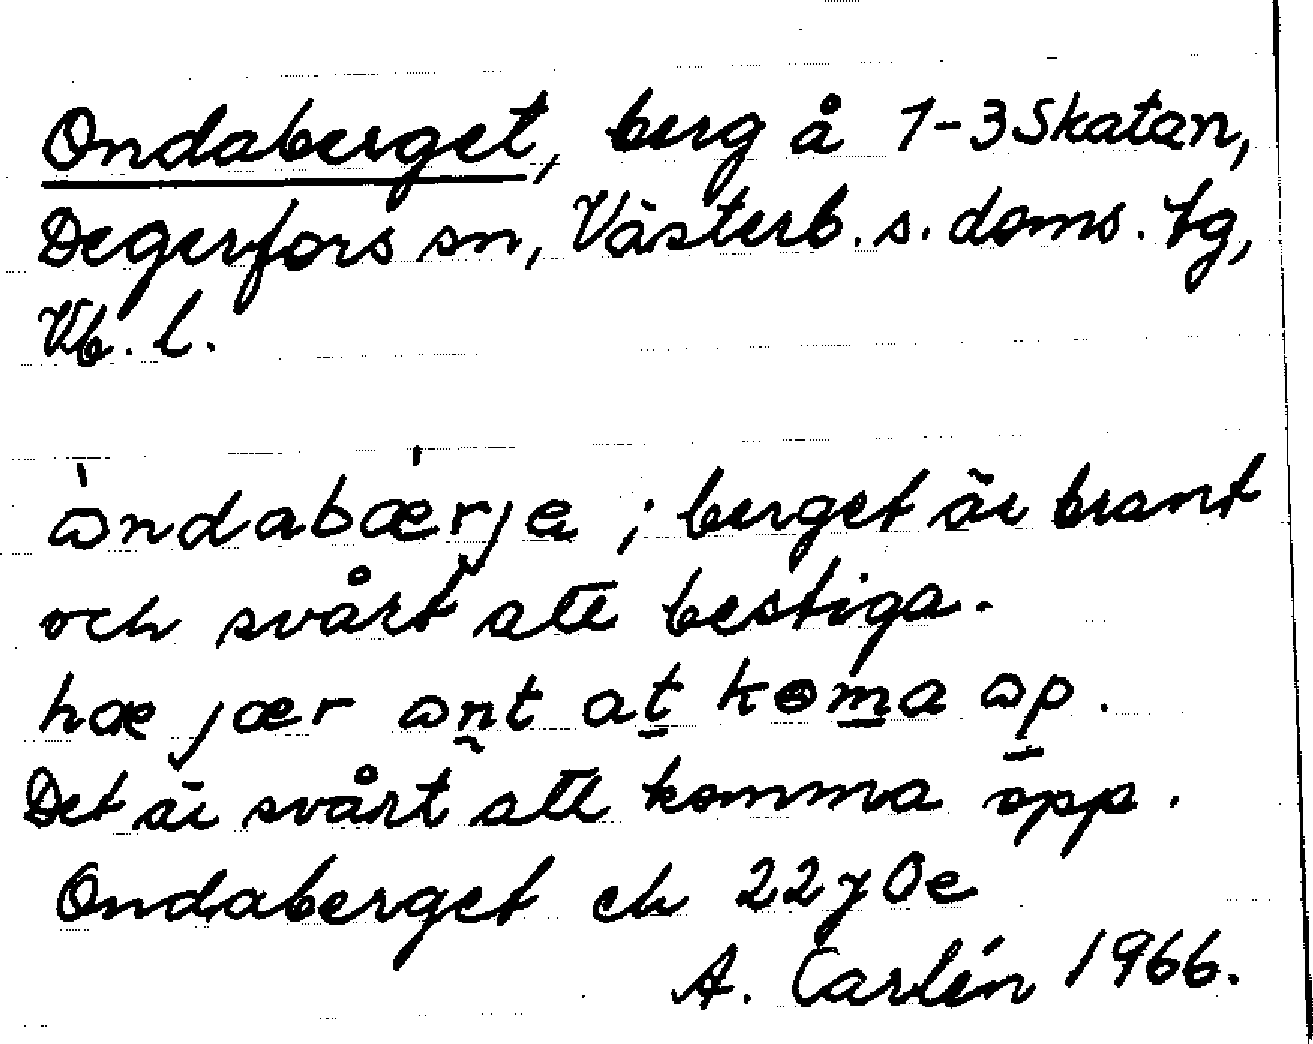 Ondaberget, berg å 1-3 Skatan,
Degerfors sn, Västerb. s. doms. tg,
Vb. l.
ɷ̀ndabǽrje ; berget är brant
och svårt att bestiga.
hæ jær ɷn̰t at̲ kɵm̲a ɷp̲.
Det är svårt att komma opp.
Ondaberget ek 22 y 0 e
A. Carlén 1966.